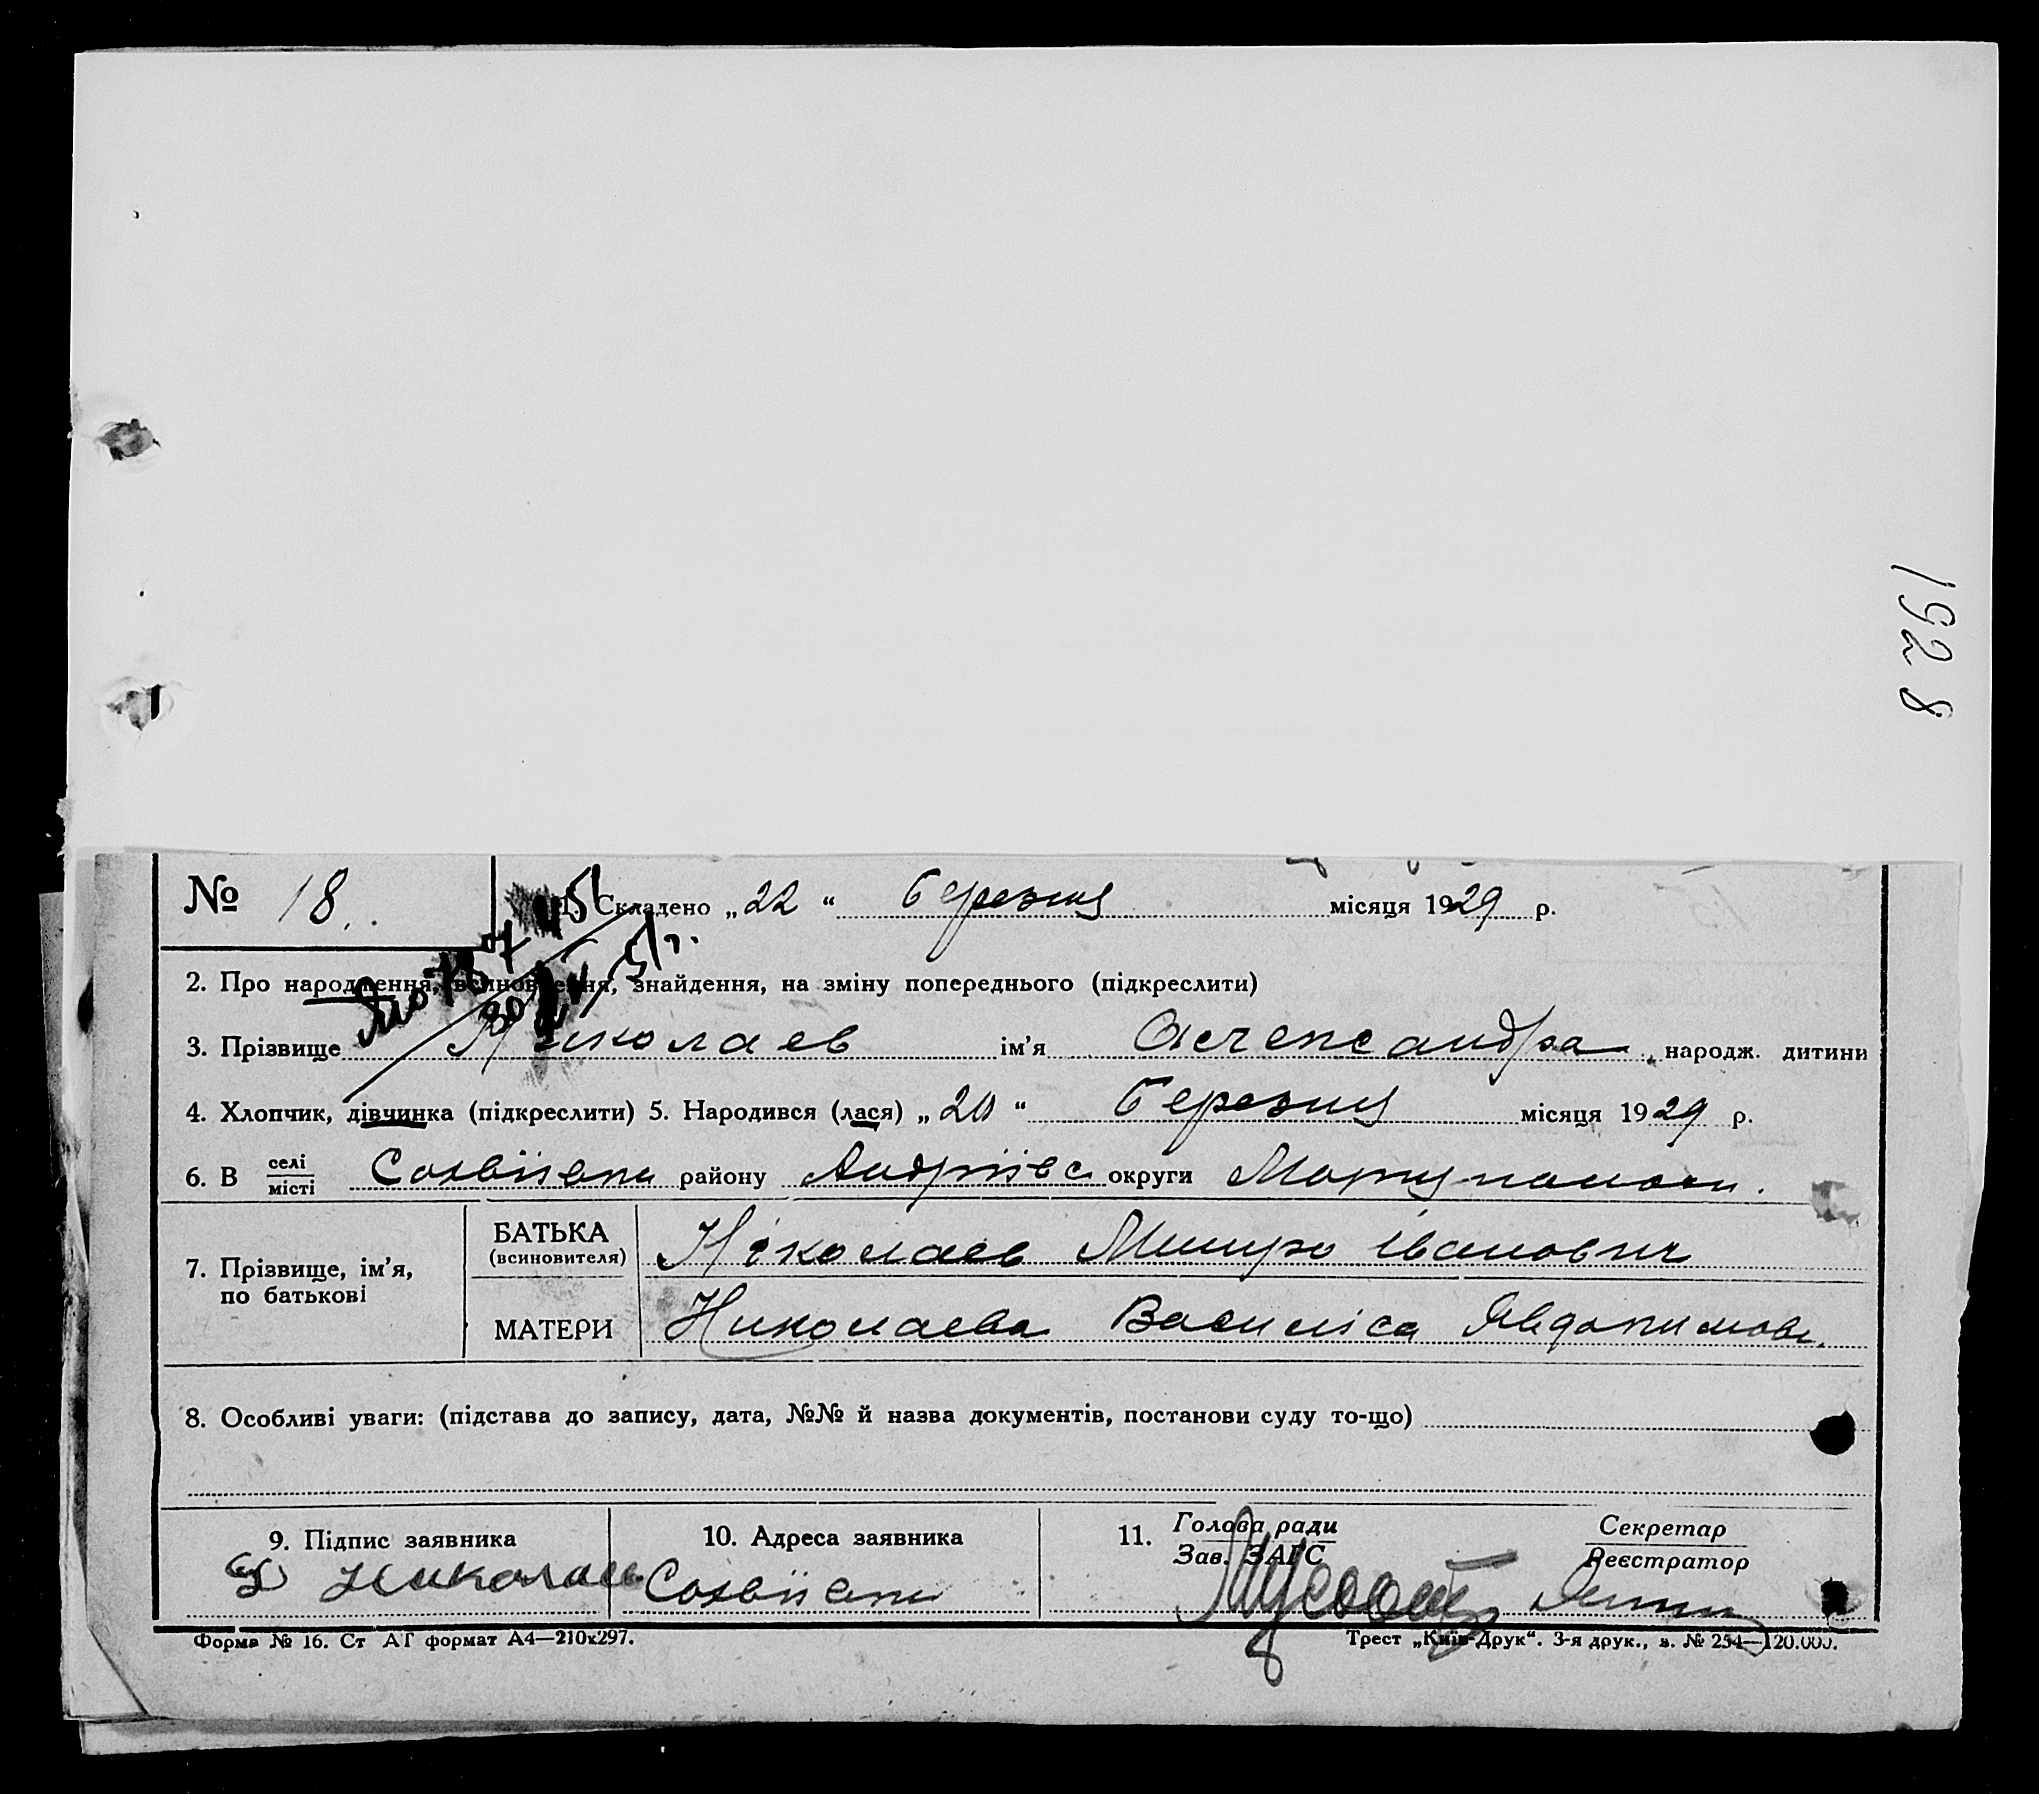 1928
№ 18.
1. Складено „22“ березня місяця 1929 р.
2. Про народження, всиновлення, знайдення, на зміну попереднього (підкреслити)
3. Прізвище Николаев ім’я Олександра народж. дитини
4. Хлопчик, дівчинка (підкреслити) 5. Народився (лася) „20“ березня місяця 1929 р.
6. В селі/місті району Андріївс округи
7. Прізвище, ім’я, по батькові
БАТЬКА (всиновителя) Ніколаев Іванович
МАТЕРИ Николаева Василіса
8. Особливі уваги: (підстава до запису, дата, №№ й назва документів, постанови суду то-що)
9. Підпис заявника
10. Адреса заявника
11. Голова ради/Зав. ЗАГС
Секретар/Реєстратор
Форма № 16. Ст АТ формат А4—210х297.
Трест „Київ-Друк“. 3-я друк., з. № 254—120.000.